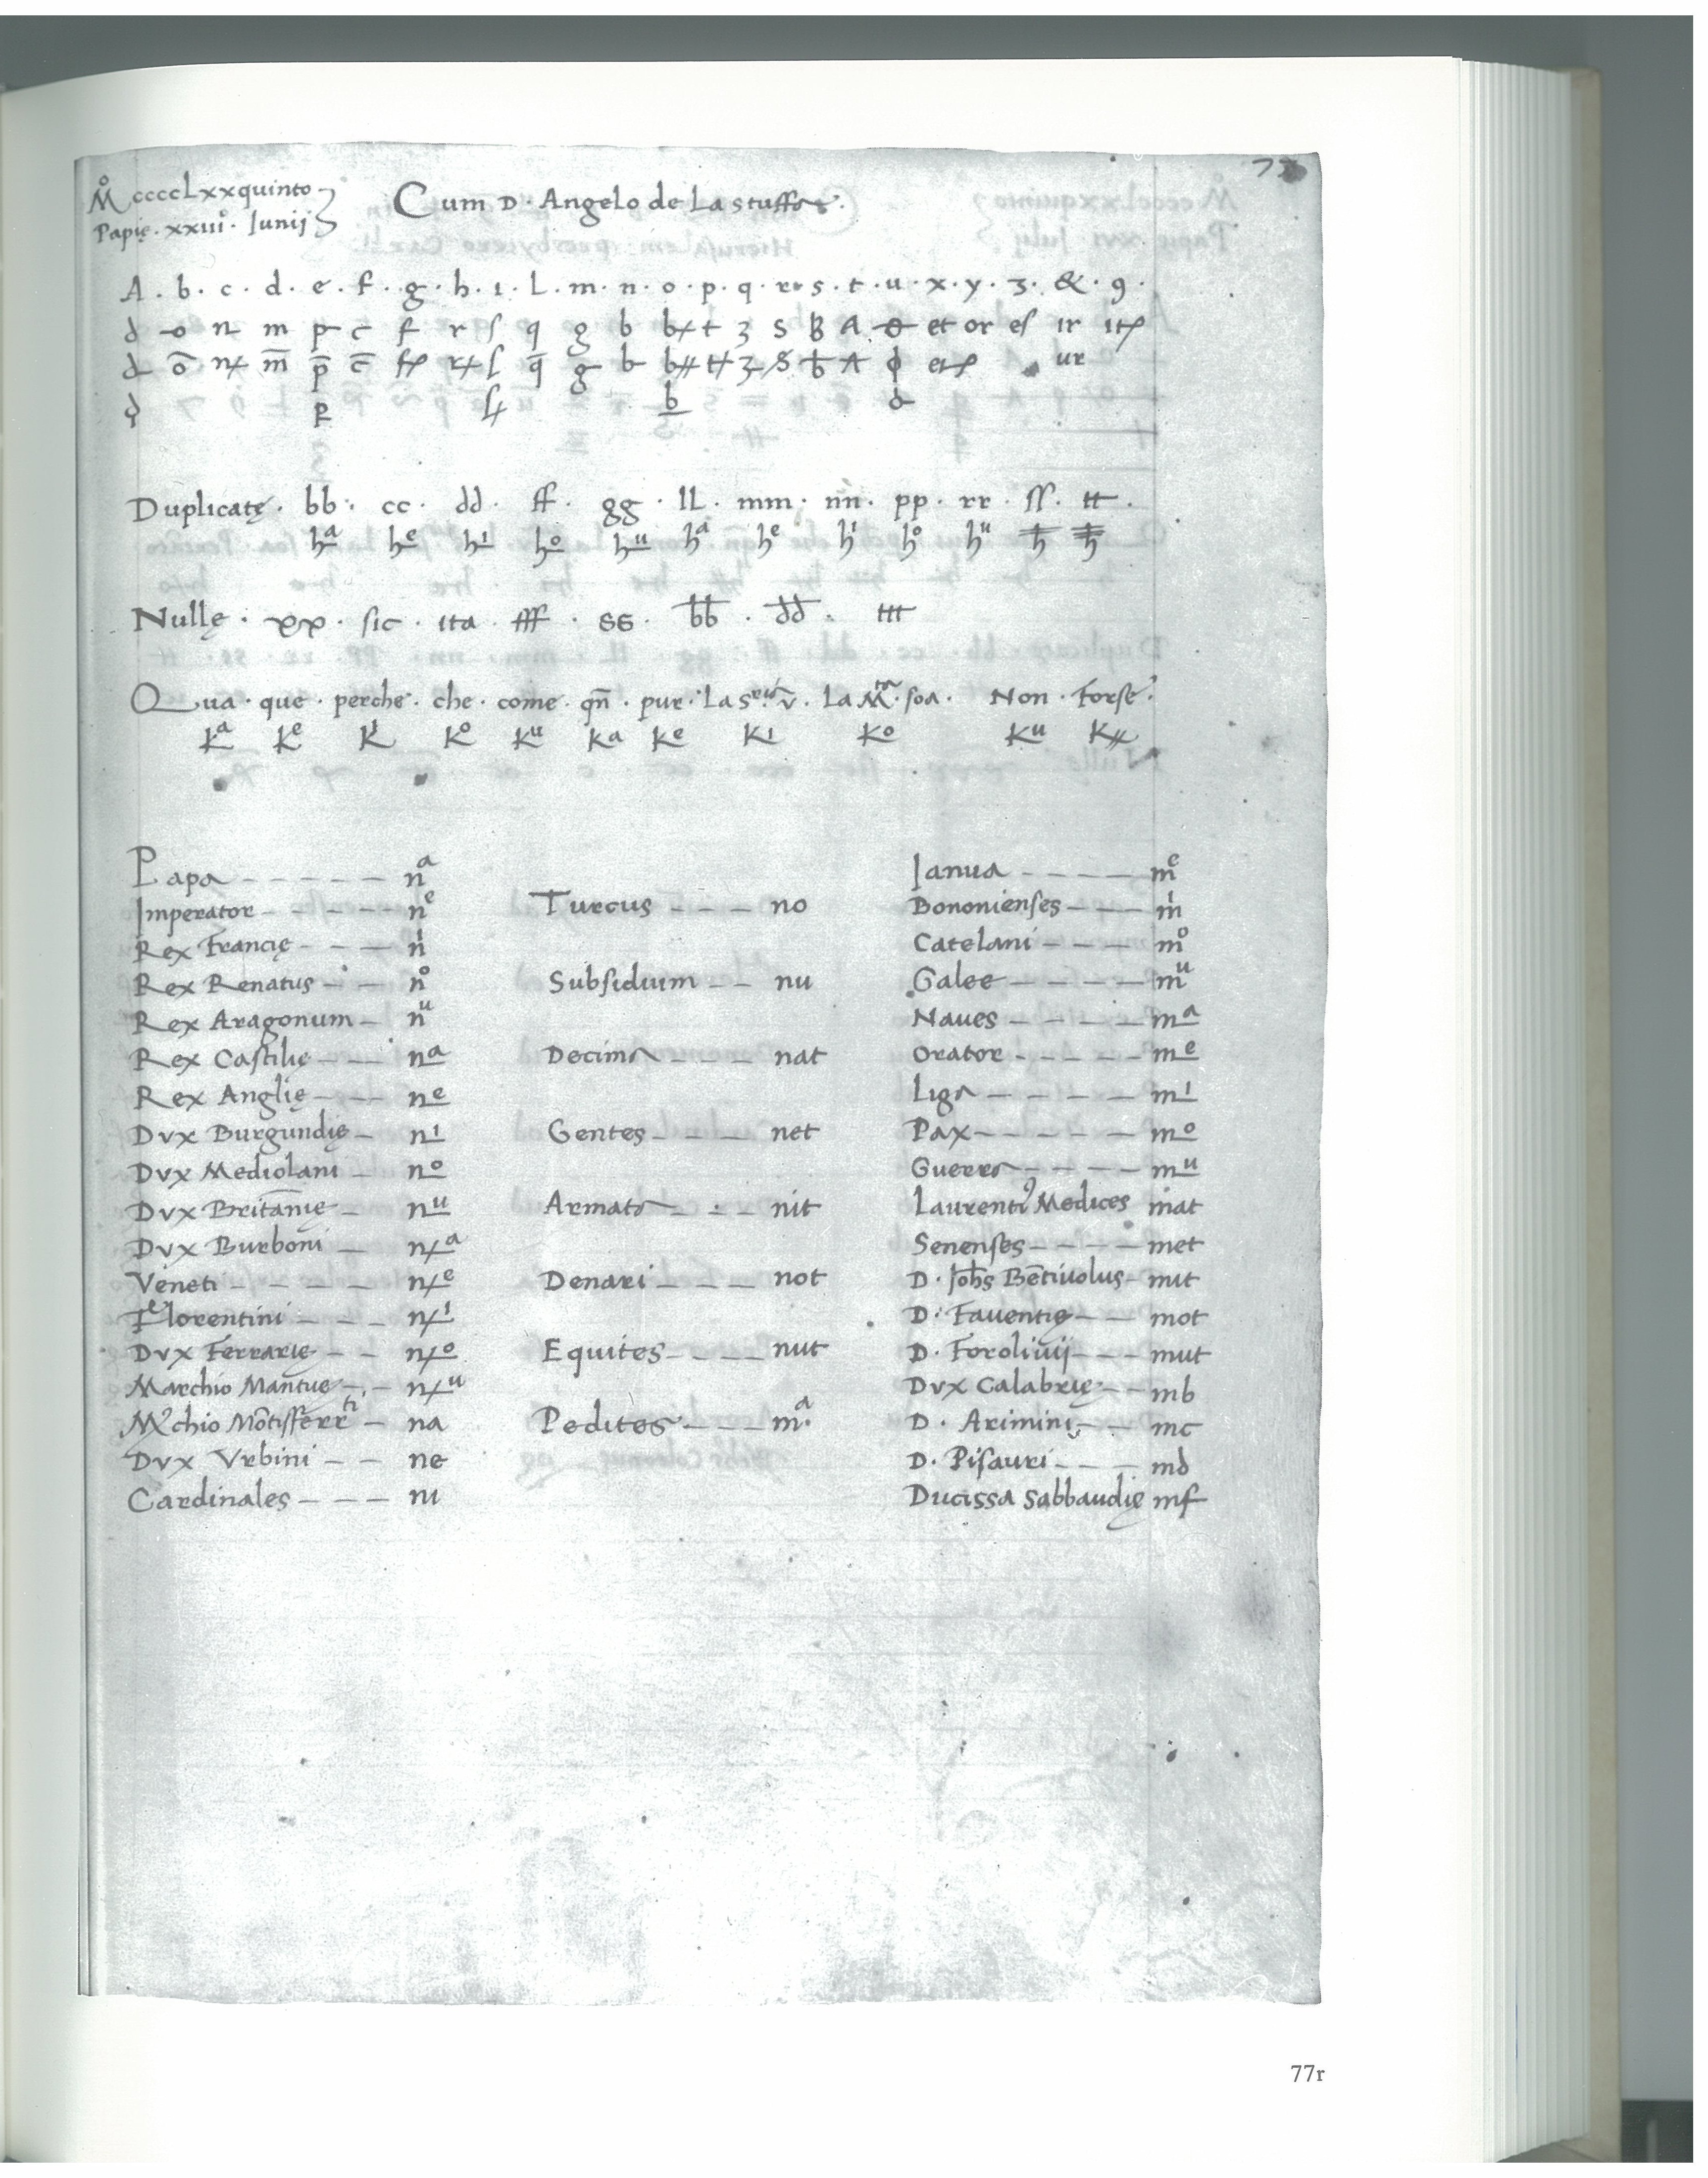 M̊ccccLxxquinto
Papię · xxiiı̊ · Iunij
Cum D · Angelo de La stuffa ·
A · b · c · d · e · f · g · h · ı · L · m · n · o · p · q · r · s · t · u · x · y · ʒ · & · 9 ·
Duplicatę · bb · cc · dd · ff · gg · lL · mm · nn · pp · rr · ſſ · tt ·
hᵃ hᵉ hⁱ hᵒ hᵘ hᵃ hᵉ hⁱ hᵒ hᵘ
Nullę · · ſic · ita · fff · ss · bb · dd · ttt
Qua · que · perche · che · come · qn̄ · pur · La Sʳⁱᵃ v · La Mᵗᵃ · soa · Non · Forse ·
Kᵃ Kᵉ Kⁱ Kᵒ Kᵘ Ka Ke Kı Kᵒ Kᵘ K
Papa - - - - - nᵃ
Imperator - - - - - nᵉ
Rex Francię - - - nⁱ
Rex Renatus - - nᵒ
Rex Aragonum - nᵘ
Rex Castilię - - - nᵃ
Rex Anglię - - - nᵉ
Dvx Burgundię - nⁱ
Dvx Mediolani - nᵒ
Dvx Britānię - nᵘ
Dvx Burboni - n̸ᵃ
Veneti - - - - - n̸ᵉ
Florentini - - - n̸ⁱ
Dvx Ferrarię - - n̸ᵒ
Marchio Mantuę - - n̸ᵘ
M̉chio Mōtisferrᵗⁱ - na
Dvx Vrbini - - ne
Cardinales - - - ni
Turcus - - - no
Subsidium - - nu
Decima - - - nat
Gentes - - - net
Armata - - - nit
Denari - - - not
Equites - - - - nut
Pedites - - - mᵃ
Ianua - - - - mᵉ
Bononienses - - - mⁱ
Catelani - - - mᵒ
Galee - - - - mᵘ
Naues - - - - mᵃ
Orator - - - - mᵉ
Liga - - - - - mⁱ
Pax - - - - - mᵒ
Guerra - - - - mᵘ
Laurentı9 Medices mat
Senenses - - - - met
D · Joh̄s Bētiuolus - mit
D · Fauentię - - mot
D · Foroliuij - - - mut
Dvx Calabrię - - mb
D · Arimini - - mc
D · Pisauri - - - md
Ducissa Sabbaudię mf
77r